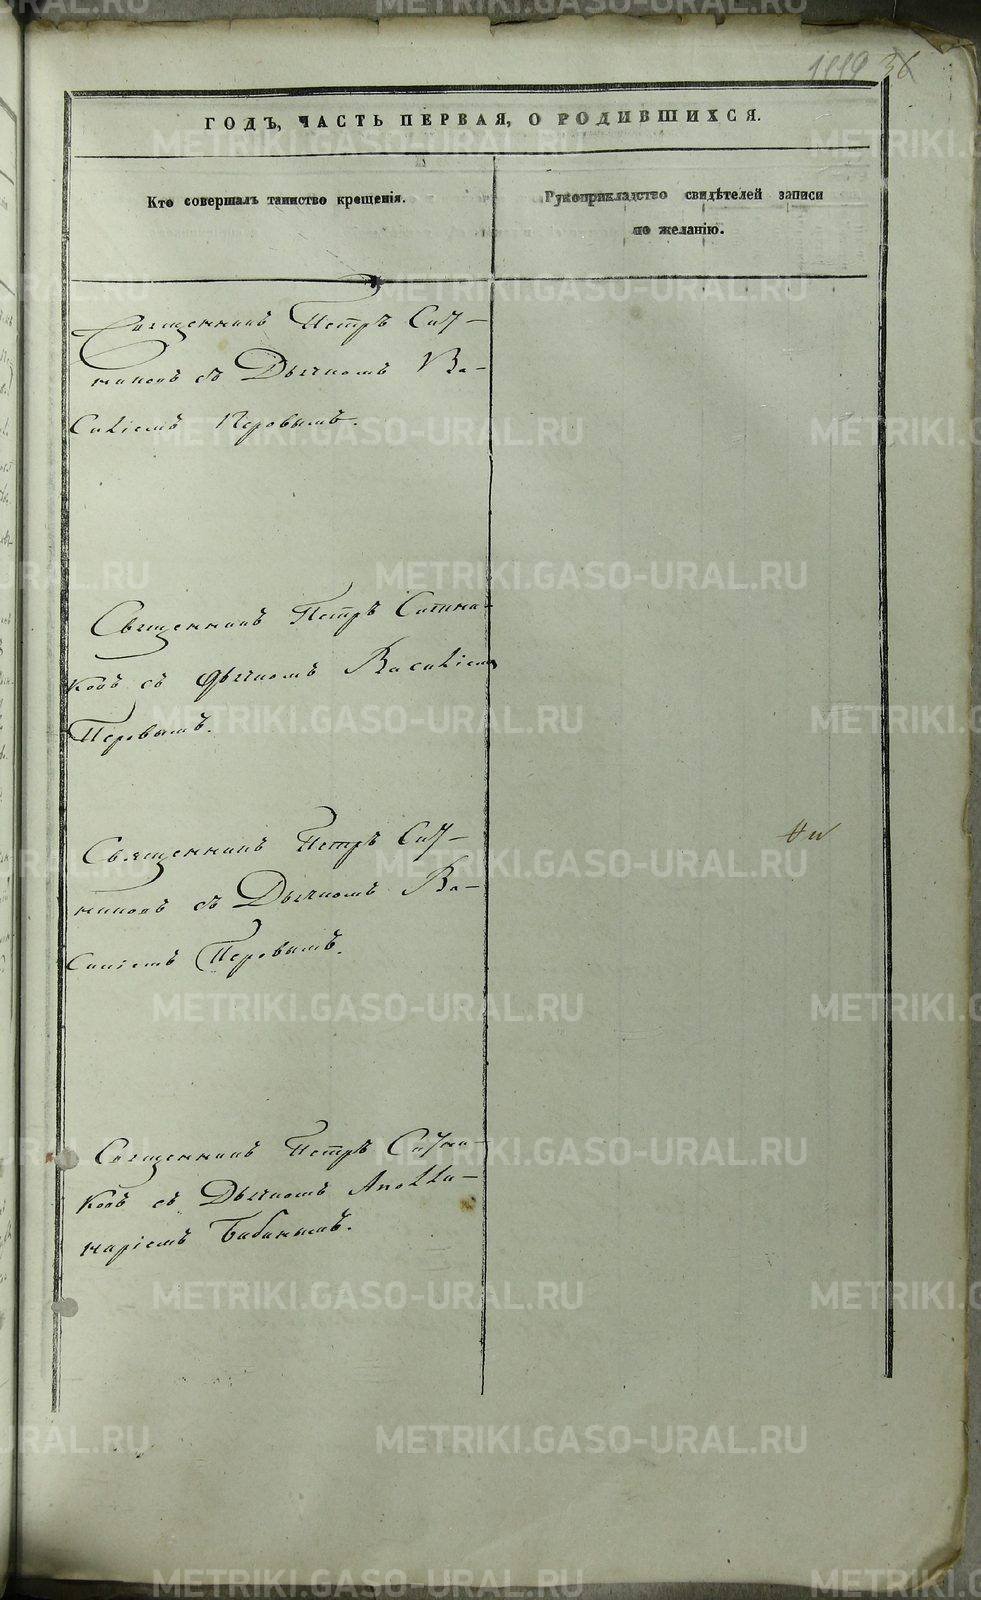 1119 36
ГОДЪ, ЧАСТЬ ПЕРВАЯ, О РОДИВШИХСЯ.
Кто совершалъ таинство крещенія.
Рукоприкладство свидѣтелей записи
по желанію.
Священникъ Петръ Сап-
никовъ съ Дьячкомъ Ва-
силіемъ Перовымъ.
Священникъ Петръ Сапни-
ковъ съ Дьячкомъ Василіемъ
Перовымъ.
Священникъ Петръ Сап-
никовъ съ Дьячкомъ Ва-
силіемъ Перовымъ.
Священникъ Петръ Сапни-
ковъ съ Дьячкомъ Аполли-
наріемъ Бабинымъ.
METRIKI.GASO-URAL.RU